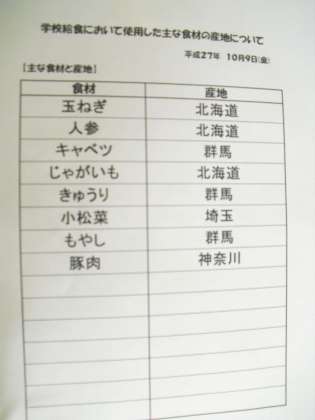 学校給食において使用した主な食材の産地について
平成27年 10月9日(金)
[主な食材と産地]
食材 産地
玉ねぎ 北海道
人参 北海道
キャベツ 群馬
じゃがいも 北海道
きゅうり 群馬
小松菜 埼玉
もやし 群馬
豚肉 神奈川